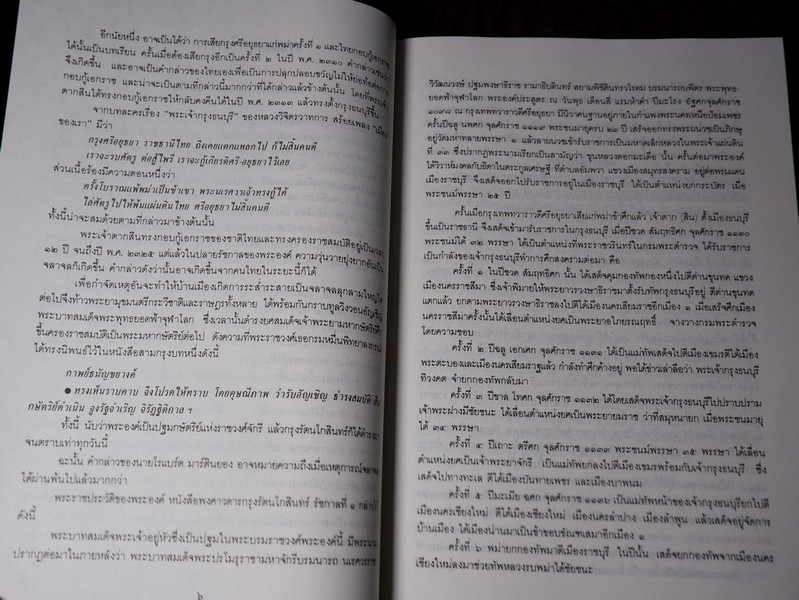 อีกนัยหนึ่ง อาจเป็นได้ว่า การเสียกรุงศรีอยุธยาแก่พม่าครั้งที่ ๑ และไทยกอบกู้เอกราช
ได้นั้นเป็นบทเรียน ครั้นเมื่อต้องเสียกรุงอีกเป็นครั้งที่ ๒ ในปี พ.ศ. ๒๓๑๐ คำกล่าวเช่นว่านี้
จึงเกิดขึ้น และอาจเป็นคำกล่าวของไทยเองเพื่อเป็นการปลุกปลอบขวัญไม่ให้ย่อท้อต่อการ
กอบกู้เอกราช และน่าจะเป็นตามที่กล่าวนี้มากกว่าที่ได้กล่าวแล้วข้างต้นนั้น โดยที่พระเจ้า
ตากสินได้ทรงกอบกู้เอกราชให้กลับคงคืนได้ในปี พ.ศ. ๒๓๑๓ แล้วทรงตั้งกรุงธนบุรีขึ้น
จากบทละครเรื่อง "พระเจ้ากรุงธนบุรี" ของหลวงวิจิตรวาทการ สร้อยเพลง "เมือง
ของเรา" มีว่า
กรุงศรีอยุธยา ราชธานีไทย ถึงเคยแตกแหลกไป ก็ไม่สิ้นคนดี
เราจะรบศัตรู ต่อสู้ไพรี เราจะกู้เกียรติศรี-อยุธยาไว้เอย
ส่วนเนื้อร้องมีความตอนหนึ่งว่า
ครั้งโบราณแพ้พม่าเป็นข้าเขา พระนเรศวรเจ้าทรงกู้ได้
ไล่ศัตรูไปให้พ้นแผ่นดินไทย ศรีอยุธยาไม่สิ้นคนดี
ทั้งนี้น่าจะสมด้วยตามที่กล่าวมาข้างต้นนั้น
พระเจ้าตากสินทรงกอบกู้เอกราชของชาติไทยและทรงครองราชสมบัติอยู่เป็นเวลา
๑๒ ปี จนถึงปี พ.ศ. ๒๓๒๕ แต่แล้วในปลายรัชกาลของพระองค์ ความวุ่นวายยุ่งยากอันเป็น
จลาจลก็เกิดขึ้น คำกล่าวดังว่านั้นอาจเกิดขึ้นจากคนไทยในระยะนี้ก็ได้
เพื่อกำจัดเหตุอันจะทำให้บ้านเมืองเกิดการระส่ำระสายเป็นจลาจลลุกลามใหญ่โต
ต่อไปจึงท้าวพระยามุขมนตรีกระวีชาติและราษฎรทั้งหลาย ได้พร้อมกันกราบทูลวิงวอนอัญเชิญ
พระบาทสมเด็จพระพุทธยอดฟ้าจุฬาโลก ซึ่งเวลานั้นดำรงยศสมเด็จเจ้าพระยามหากษัตริย์ศึก
ขึ้นครองราชสมบัติเป็นพระมหากษัตริย์ต่อไป ดังความที่พระราชวงศ์เธอกรมหมื่นพิทยาลงกรณ์
ได้ทรงนิพนธ์ไว้ในหนังสือสามกรุงบทหนึ่งดังนี้
กาพย์ธนัญชยางค์
● ทรงเห็นราบคาบ จึงโปรดให้ทราบ โดยดุษณีภาพ ว่ารับอัญเชิญ ธำรงสมบัติ
กษัตริย์ดำเนิน จูงรัฐจำเริญ จิรัฏฐิติกาล ฯ
ทั้งนี้ นับว่าพระองค์เป็นปฐมกษัตริย์แห่งราชวงศ์จักรี แล้วกรุงรัตนโกสินทร์ก็ได้ดำรงมา
จนตราบเท่าทุกวันนี้
ฉะนั้น คำกล่าวของนายโรเบรต์ มาร์ตินยอง อาจหมายความถึงเมื่อเหตุการณ์จลาจล
ได้ผ่านพ้นไปแล้วมากกว่า
พระราชประวัติของพระองค์ หนังสือพงศาวดารกรุงรัตนโกสินทร์ รัชกาลที่ ๑ กล่าวไว้
ดังนี้
พระบาทสมเด็จพระเจ้าอยู่หัวซึ่งเป็นปฐมในพระบรมราชวงศ์พระองค์นี้ มีพระนาม
ปรากฏต่อมาในภายหลังว่า พระบาทสมเด็จพระปรโมรุราชามหาจักรีบรมนารถ นเรศวรราช
๖
วิวัฒนวงษ์ ปฐมพงษาธิราช รามาธิบดินทร์ สยามพิชิตินทรวโรดม บรมนารถบพิตร พระพุทธ-
ยอดฟ้าจุฬาโลก พระองค์ประสูตร ณ วันพุธ เดือนสี่ แรมห้าค่ำ ปีมะโรง อัฐศกจุลศักราช
๑๐๙๘ ณ กรุงเทพทวาราวดีศรีอยุธยา มีนิวาศนฐานอยู่ภายในกำแพงพระนครเหนือป้อมเพชร
ครั้นปีฉลู นพศก จุลศักราช ๑๑๑๙ พระชนมายุครบ ๒๑ ปี เสด็จออกทรงพระผนวชเป็นภิกษุ
อยู่วัดมหาทลายพรรษา ๑ แล้วลาผนวชเข้ารับราชการเป็นมหาดเล็กหลวงในพระเจ้าแผ่นดิน
ที่ ๓๓ ซึ่งปรากฏพระนามเรียกเป็นสามัญว่า ขุนหลวงดอกมะเดื่อ นั้น ครั้นต่อมาพระองค์
ได้วิวาห์มงคลกับธิดาในตระกูลเศรษฐี ที่ตำบลอัมพวา แขวงเมืองสมุทรสงคราม อยู่ต่อพรมแดน
เมืองราชบุรี จึงเสด็จออกไปรับราชการอยู่ในเมืองราชบุรี ได้เป็นตำแหน่งยกกระบัตร เมื่อ
พระชนม์พรรษา ๒๕ ปี
ครั้นเมื่อกรุงเทพทวาราวดีศรีอยุธยาเสียแก่พม่าข้าศึกแล้ว เจ้าตาก (สิน) ตั้งเมืองธนบุรี
ขึ้นเป็นราชธานี จึงเสด็จเข้ามารับราชการในกรุงธนบุรี เมื่อปีชวด สัมฤทธิศก จุลศักราช ๑๑๓๐
พระชนม์ได้ ๓๒ พรรษา ได้เป็นตำแหน่งที่พระราชวรินทร์ในกรมพระตำรวจ ได้รับราชการ
เป็นกำลังของเจ้ากรุงธนบุรีทำการศึกสงครามต่อมา คือ
ครั้งที่ ๑ ในปีชวด สัมฤทธิศก นั้น ได้เสด็จคุมกองทัพกองหนึ่งไปตีด่านขุนทด แขวง
เมืองนครราชสีมา ซึ่งเจ้าพิมายให้พระยาวรวงษาธิราชมาตั้งรับทัพกรุงธนบุรีอยู่ ตีด่านขุนทด
แตกแล้ว ยกตามพระยาวรวงษาธิราชลงไปตีได้เมืองนครเสียมราชอีกเมือง ๑ เมื่อเสร็จศึกเมือง
นครราชสีมาครั้งนั้นได้เลื่อนตำแหน่งยศเป็นพระยาอภัยรณฤทธิ์ จางวางกรมพระตำรวจ
โดยความชอบ
ครั้งที่ ๒ ปีฉลู เอกศก จุลศักราช ๑๑๓๑ ได้เป็นแม่ทัพเสด็จไปตีเมืองเขมรตีได้เมือง
พระตะบองและเมืองนครเสียมราฐแล้ว กำลังทำศึกค้างอยู่ พอได้ข่าวเล่าลือว่า พระเจ้ากรุงธนบุรี
ทิวงคต จำยกกองทัพกลับมา
ครั้งที่ ๓ ปีขาล โทศก จุลศักราช ๑๑๓๒ ได้โดยเสด็จพระเจ้ากรุงธนบุรีไปปราบปราม
เจ้าพระฝางมีชัยชนะ ได้เลื่อนตำแหน่งยศเป็นพระยายมราช ว่าที่สมุหนายก เมื่อพระชนมายุ
ได้ ๓๔ พรรษา
ครั้งที่ ๔ ปีเถาะ ตรีศก จุลศักราช ๑๑๓๓ พระชนม์พรรษา ๓๕ พรรษา ได้เลื่อน
ตำแหน่งยศเป็นเจ้าพระยาจักรี เป็นแม่ทัพยกลงไปตีเมืองเขมรพร้อมกับเจ้ากรุงธนบุรี ซึ่ง
เสด็จไปทางทะเล ตีได้เมืองบันทายเพชร และเมืองบาพนม
ครั้งที่ ๕ ปีมะเมีย ฉศก จุลศักราช ๑๑๓๖ เป็นแม่ทัพหน้าของเจ้ากรุงธนบุรียกไปตี
เมืองนครเชียงใหม่ ตีได้เมืองเชียงใหม่ เมืองนครลำปาง เมืองลำพูน แล้วเสด็จอยู่จัดการ
บ้านเมือง ได้เมืองน่านมาเป็นข้าขอบขัณฑเสมาอีกเมือง ๑
ครั้งที่ ๖ พม่ายกกองทัพมาตีเมืองราชบุรี ในปีนั้น เสด็จยกกองทัพจากเมืองนคร
เชียงใหม่ลงมาช่วยทัพหลวงรบพม่าได้ชัยชนะ